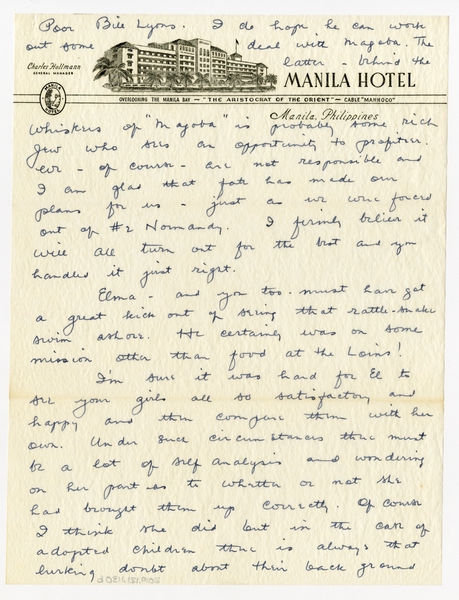 Poor Bill Lyons. I do hope he can work
out some deal with Magoba. The
latter - behind the
Charles Hollmann
GENERAL MANAGER
MANILA HOTEL
MANILA HOTEL
OVERLOOKING THE MANILA BAY — "THE ARISTOCRAT OF THE ORIENT" — CABLE "MANHOCO"
Manila, Philippines
whiskers of "Magoba" is probably some rich
Jew who sees an opportunity to profiteer.
We - of course - are not responsible and
I am glad that fate has made our
plans for us - just as we were forced
out of #2 Normandy. I firmly believe it
will all turn out for the best and you
handled it just right.
Elma - and you too - must have got
a great kick out of seeing that rattle-snake
swim ashore. He certainly was on some
mission other than food at the Loins!
I'm sure it was hard for El to
see your girls all so satisfactory and
happy and then compare them with her
own. Under such circumstances there must
be a lot of self analysis and wondering
on her part as to whether or not she
had brought them up correctly. Of course
I think she did but in the case of
adopted children there is always that
lurking doubt about their back ground